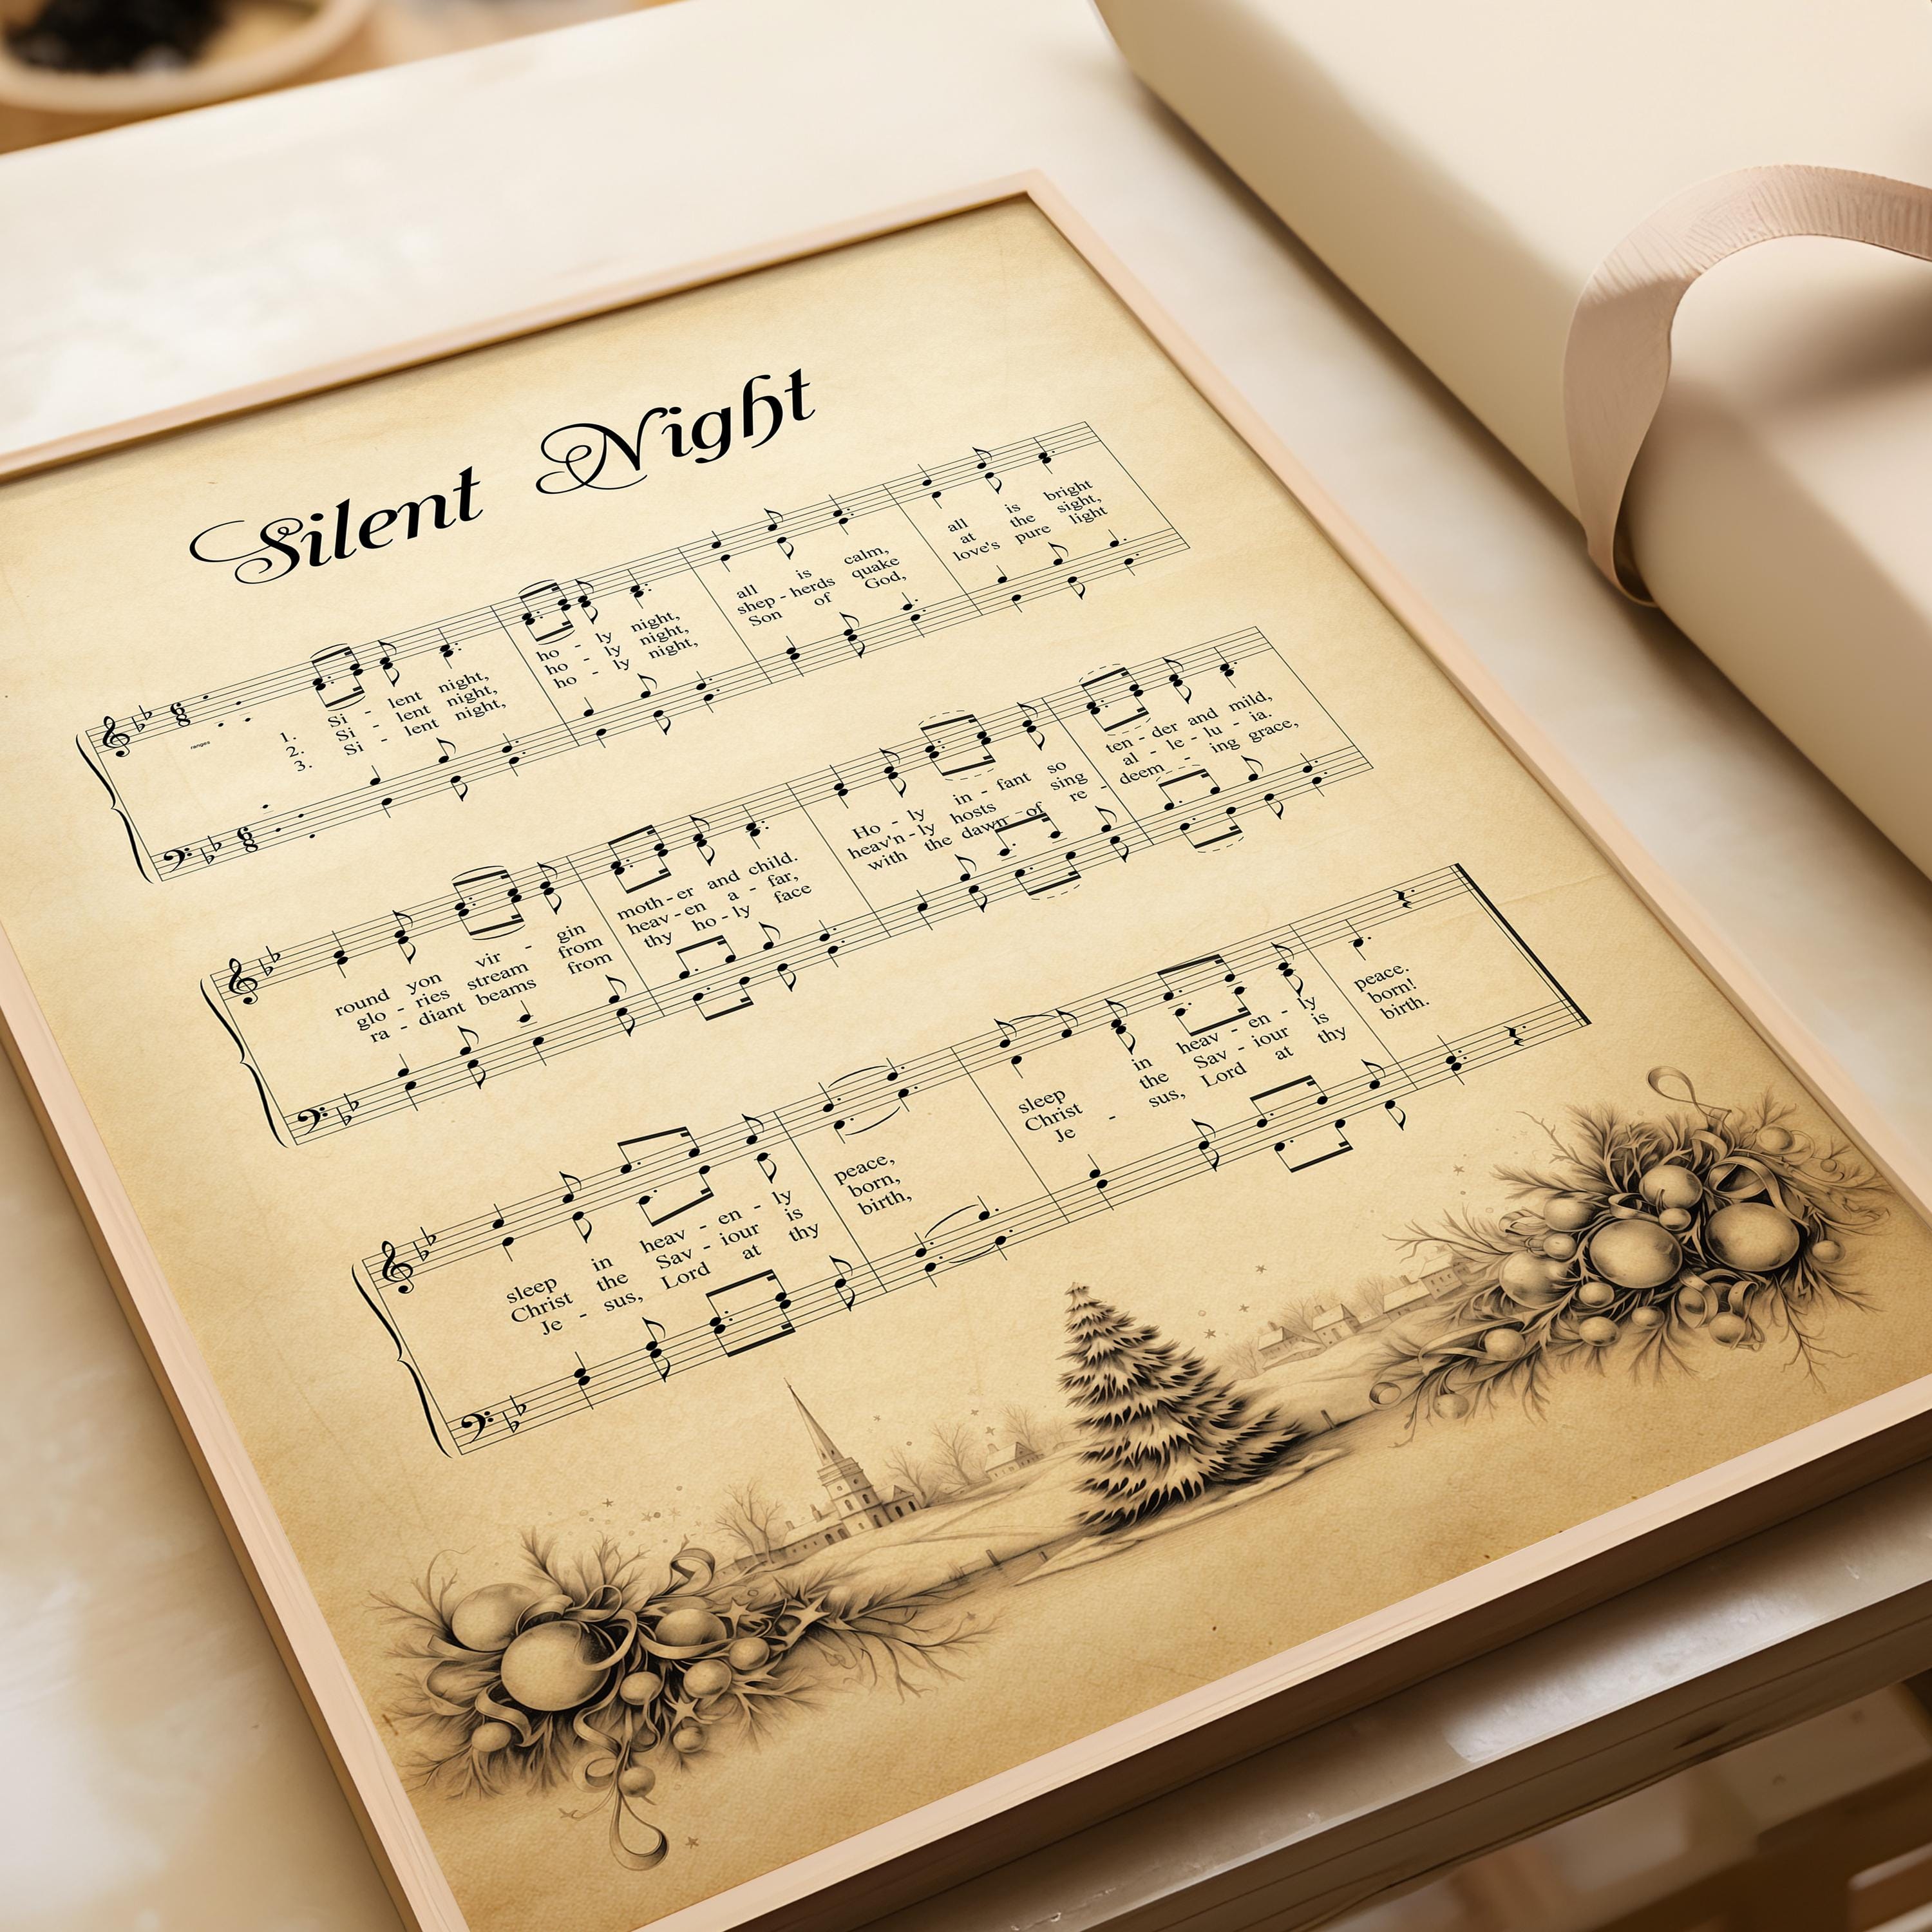 Silent Night
6 8
ranges
1. Si - lent night, ho - ly night, all is calm, all is bright
2. Si - lent night, ho - ly night, shep - herds quake at the sight,
3. Si - lent night, ho - ly night, Son of God, love's pure light
6 8
round yon vir - gin moth - er and child. Ho - ly in - fant so ten - der and mild,
glo - ries stream from heav - en a - far, heav'n - ly hosts sing al - le - lu - ia.
ra - diant beams from thy ho - ly face with the dawn of re - deem - ing grace,
sleep in heav - en - ly peace, sleep in heav - en - ly peace.
Christ the Sav - iour is born, Christ the Sav - iour is born!
Je - sus, Lord at thy birth, Je - sus, Lord at thy birth.